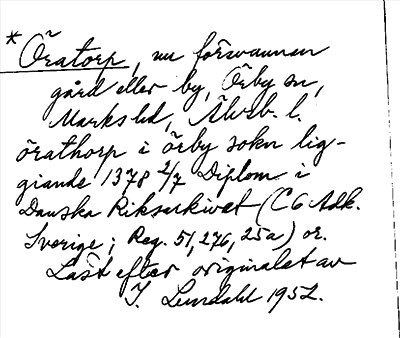 * Öratorp, nu försvunnen
gård eller by, Örby sn,
Marks hd, Älvsb. l.
örathorp i örby sokn lig-
giande 1378 2/7 Diplom i
Danska Riksarkivet (C6 Adk.
Sverige; Reg. 51, 276, 25a) or.
Läst efter originalet av
I. Lundahl 1952.